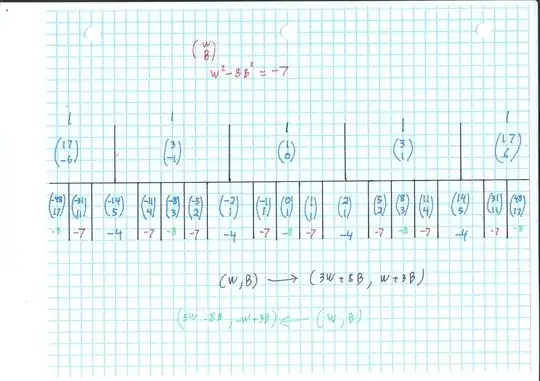 (W
B)
W² - 8B² = -7
1 1 1 1 1
(17 -6) (3 -1) (1 0) (3 1) (17 6)
(-48 17) (-31 11) (-14 5) (-11 4) (-8 3) (-5 2) (-2 1) (-1 1) (0 1) (1 1) (2 1) (5 2) (8 3) (11 4) (14 5) (31 11) (48 17)
-8 -7 -4 -7 -8 -7 -4 -7 -8 -7 -4 -7 -8 -7 -4 -7 -8
(W, B) ⟶ (3W + 8B, W + 3B)
(3W - 8B, -W + 3B) ⟵ (W, B)